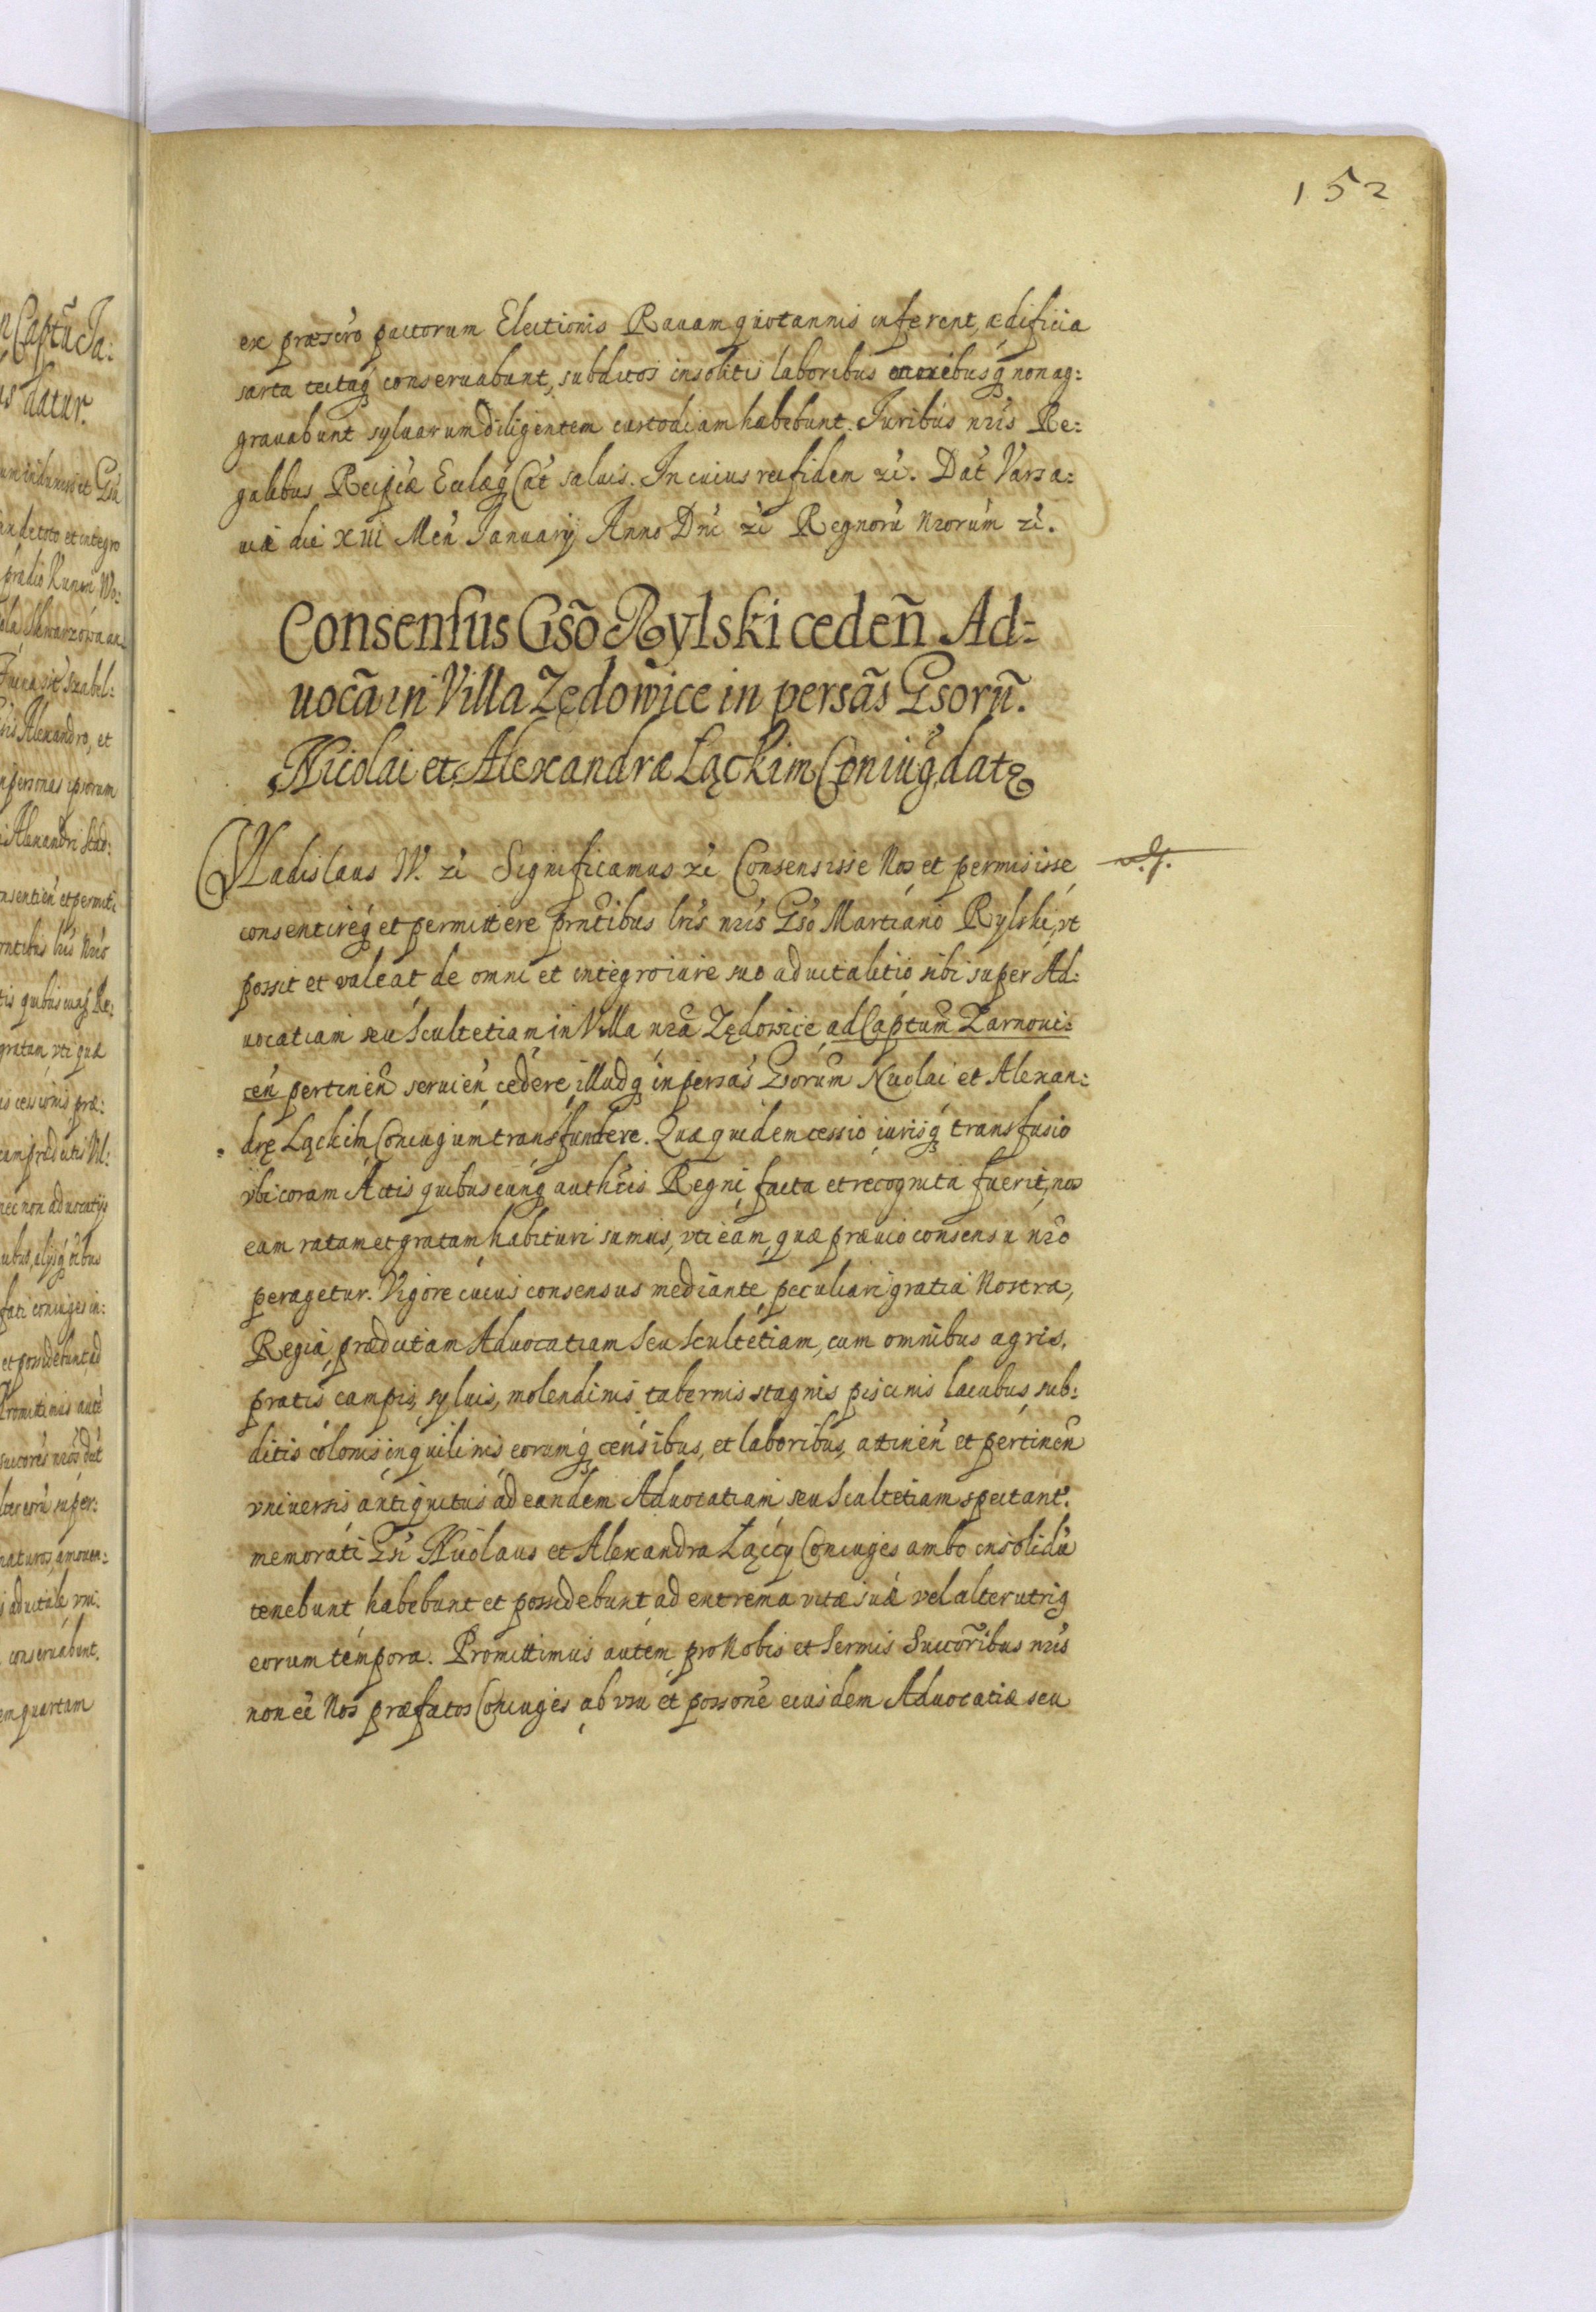 152
ex præscro pactorum Electionis Rauam quotannis inferent, ædificia
sarta tectaq conseruabunt, subditos insolitis laboribus nonag:
grauabunt syluarum diligentem custodiam habebunt. Juribus nris Re:
galibus Reipcæ Eclæq Cat saluis. In cuius rei fidem zc. Dat Varsa:
uiæ die XIII Men January Anno Dni zc Regnorũ Nrorum zc.
Consensus Gsõ Rylski cedeñ Ad=
uocã in Villa Zędowice in persãs Gsorũ.
Nicolai et Alexandræ Ląckim Coniug datę
Vladislaus IV. zc Significamus zc Consensisse Nos et permisisse
consentireq et permittere prntibus lris nris Gso Martiano Rylski, vt
possit et valeat de omni et integro iure suo aduitalitio sibi super Ad:
uocatiam seu Scultetiam in Villa nra Zędowice ad Captum Zarnoui:
cen pertinen seruien cedere, illudq in persas Gsorum Nicolai et Alexan:
drę Ląckim Coniugum transfundere. Quæ quidem cessio iurisq transfusio
vbi coram Actis quibuscunq authcis Regni facta et recognita fuerit, nos
eam ratam et gratam habituri sumus, vti eam, quæ præuio consensu nro
peragetur. Vigore cuius consensus mediante peculiari gratia Nostra,
Regia, prædictam Aduocatiam seu scultetiam, cum omnibus agris,
pratis campis, syluis, molendinis tabernis stagnis piscinis lacubus, sub:
ditis colonis inquilinis eorumq censibus, et laboribus, attinen et pertinen
vniuersis antiquitus ad eandem Aduocatiam seu Scultetiam spectant.
memorati Gsi Nicolaus et Alexandra Łąccy Coniuges ambo insolidũ
tenebunt habebunt et possidebunt ad extrema vitæ suæ vel alterutriq
eorum tempora. Promittimus autem pro Nobis et Sermis Succoribus nris
non ee Nos præfatos Coniuges ab vsu et possone eiusdem Aduocatiæ seu